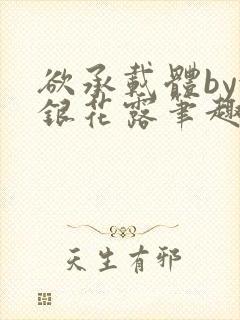 欲承載體by
銀花露筆趣
天生有邪